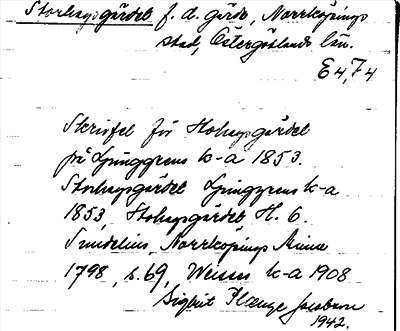 Storhagsgärdet f. d. gärde, Norrköpings
stad, Östergötlands län.
E4,74
Skrivfel för Hohagsgärdet
på Ljunggrens k-a 1853.
Storhagsgärdet Ljunggrens k-a
1853, Hohagsgärdet H. 6.
Sundelius, Norrköpings Minne
1798, s. 69, Weisers k-a 1908
Sigbrit Plænge Jacobson
1942.